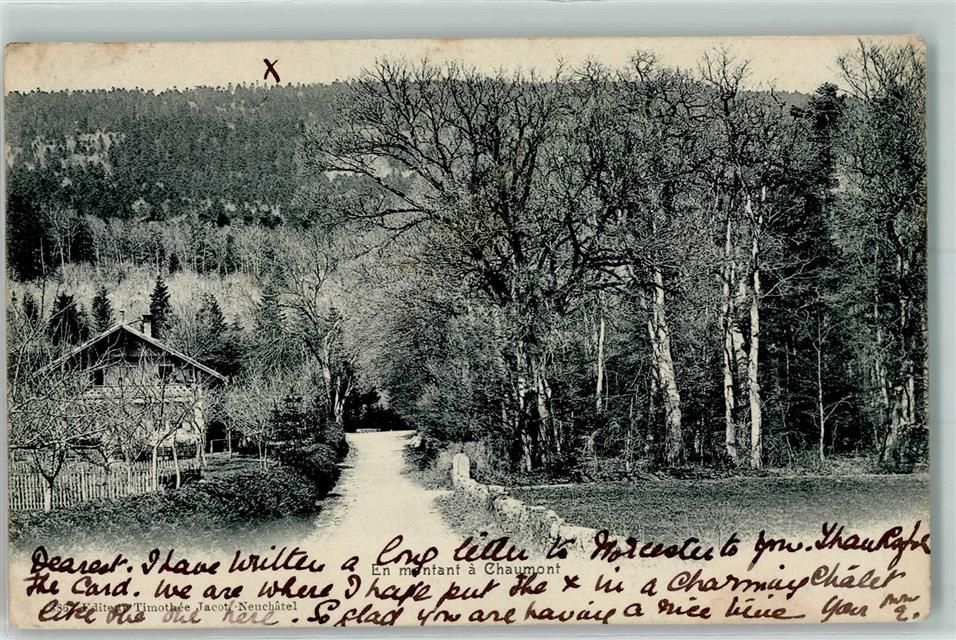 x
Dearest. I have written a long letter to Worcester to you. Thanks for
En montant à Chaumont
the card. We are where I have put the x in a charming Châlet
Editeur Timothée Jacot, Neuchâtel
like the one here. So glad you are having a nice time Your